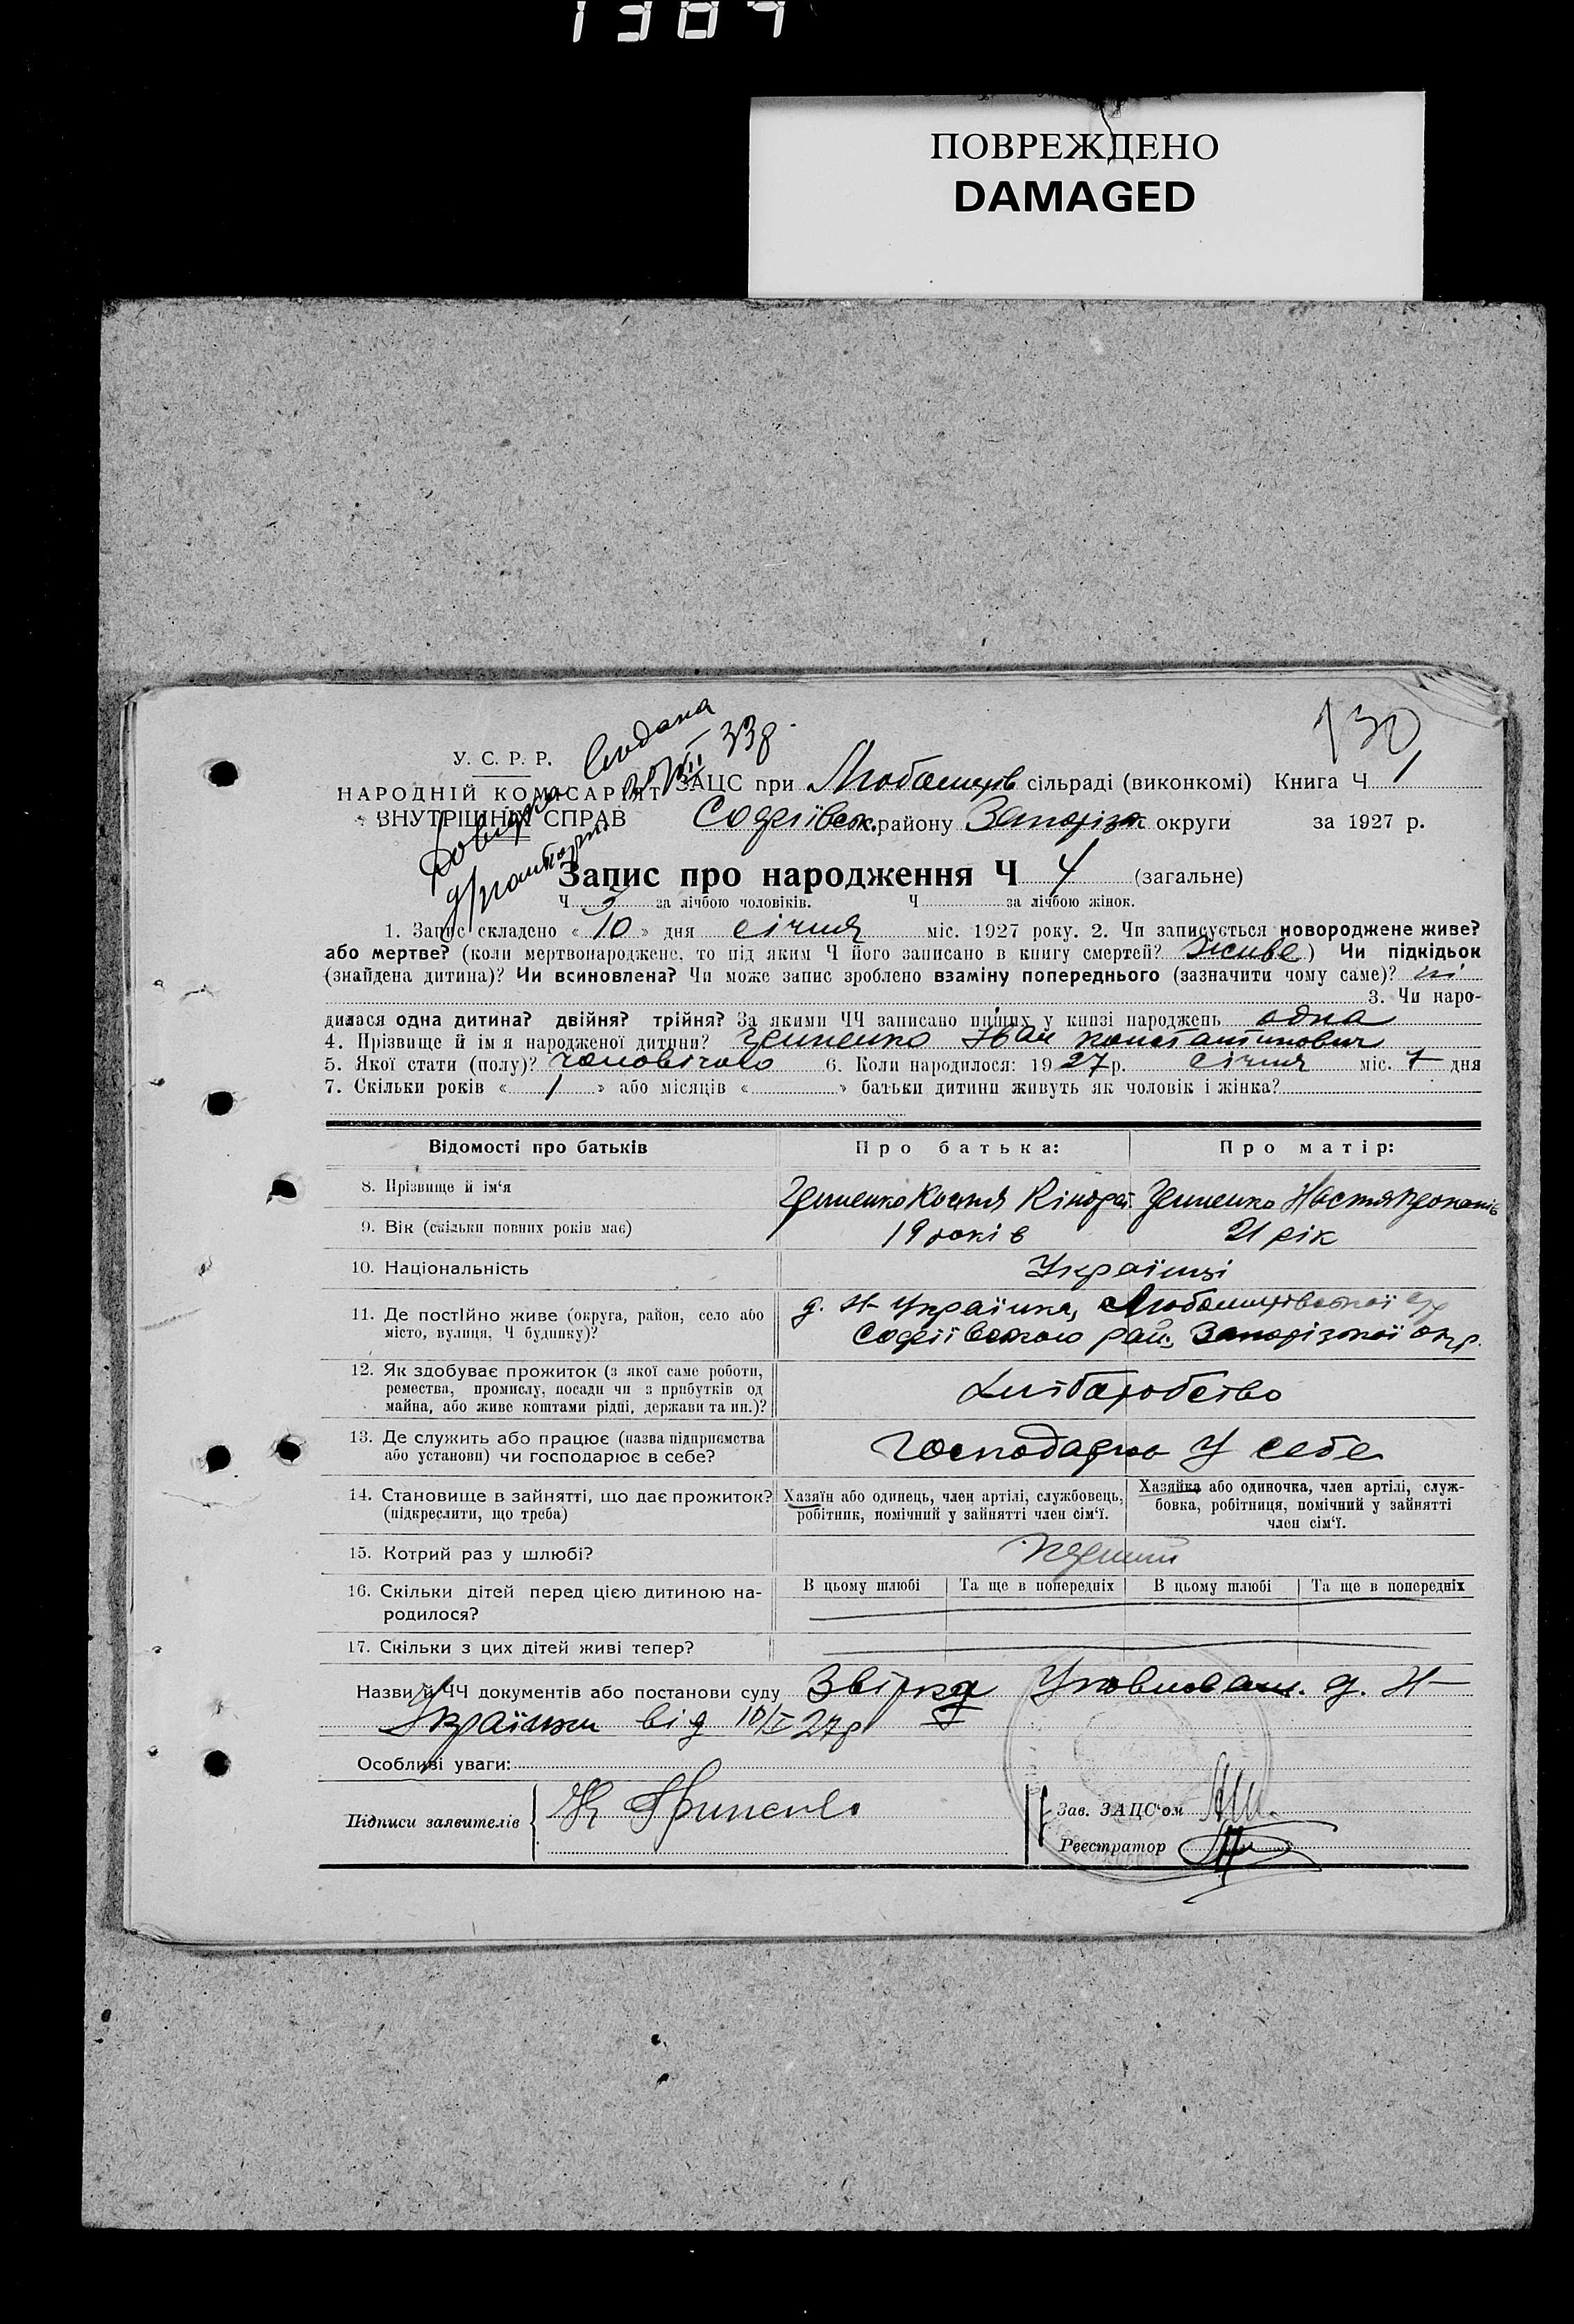 1389
ПОВРЕЖДЕНО
DAMAGED
130
У. С. Р. Р.
НАРОДНІЙ КОМІСАРІЯТ
ВНУТРІШНІХ СПРАВ
Довідка видана
ЗАЦС при сільраді (виконкомі) Книга Ч 1
району Запоріз. округи за 1927 р.
Запис про народження Ч 4 (загальне)
Ч 3 за лічбою чоловіків. Ч за лічбою жінок.
1. Запис складено « 10 » дня січня міс. 1927 року. 2. Чи записується новороджене живе?
або мертве? (коли мертвонароджене, то під яким Ч його записано в книгу смертей? живе ) Чи підкідьок
(знайдена дитина)? Чи всиновлена? Чи може запис зроблено взаміну попереднього (зазначити чому саме)? ні
3. Чи наро-
дилася одна дитина? двійня? трійня? За якими ЧЧ записано инших у книзі народжень одна
4. Прізвище й ім я народженої дитини? Іван Константинович
5. Якої стати (полу)? чоловічого 6. Коли народилося: 19 27 р. січня міс. 7 дня
7. Скільки років « 1 » або місяців « » батьки дитини живуть як чоловік і жінка?
Відомості про батьків Про батька: Про матір:
8. Прізвище й ім‘я Костя Настя
9. Вік (скільки повних років має) 19 років 21 рік
10. Національність Українці
11. Де постійно живе (округа, район, село або д. Н-Українка,
місто, вулиця, Ч будинку)? рай. Запорізької окр.
12. Як здобуває прожиток (з якої саме роботи,
ремества, промислу, посади чи з прибутків од Хліборобство
майна, або живе коштами рідні, держави та ин.)?
13. Де служить або працює (назва підприємства Господарює у себе
або установи) чи господарює в себе?
14. Становище в зайнятті, що дає прожиток? Хазяїн або одинець, член артілі, службовець, Хазяйка або одиночка, член артілі, служ-
(підкреслити, що треба) робітник, помічний у зайнятті член сім‘ї. бовка, робітниця, помічний у зайнятті
член сім‘ї.
15. Котрий раз у шлюбі? перший
16. Скільки дітей перед цією дитиною на- В цьому шлюбі Та ще в попередніх В цьому шлюбі Та ще в попередніх
родилося?
17. Скільки з цих дітей живі тепер?
Назви й ЧЧ документів або постанови суду Звірка Уповноваж. д. Н-
Українки від 10/I 27р
Особливі уваги:
Підписи заявителів
Зав. ЗАЦС‘ом
Реєстратор